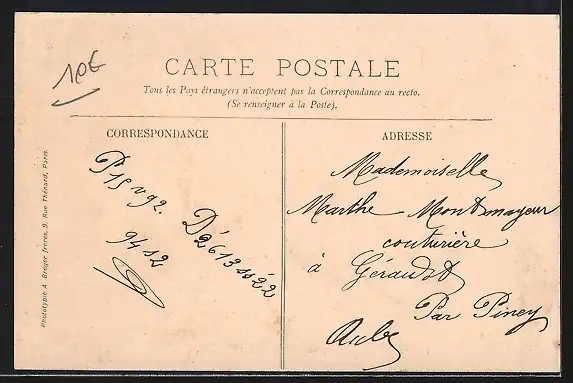 10€
CARTE POSTALE
Tous les Pays étrangers n'acceptent pas la Correspondance au recto.
(Se renseigner à la Poste).
CORRESPONDANCE
P 15 v 92.
D'2613 ss 22
9412
ADRESSE
Mademoiselle
Marthe Montmayeur
couturière
à Géraudot
Par Piney
Aube
Phototypie A. Breger frères, 9, Rue Thénard, Paris.